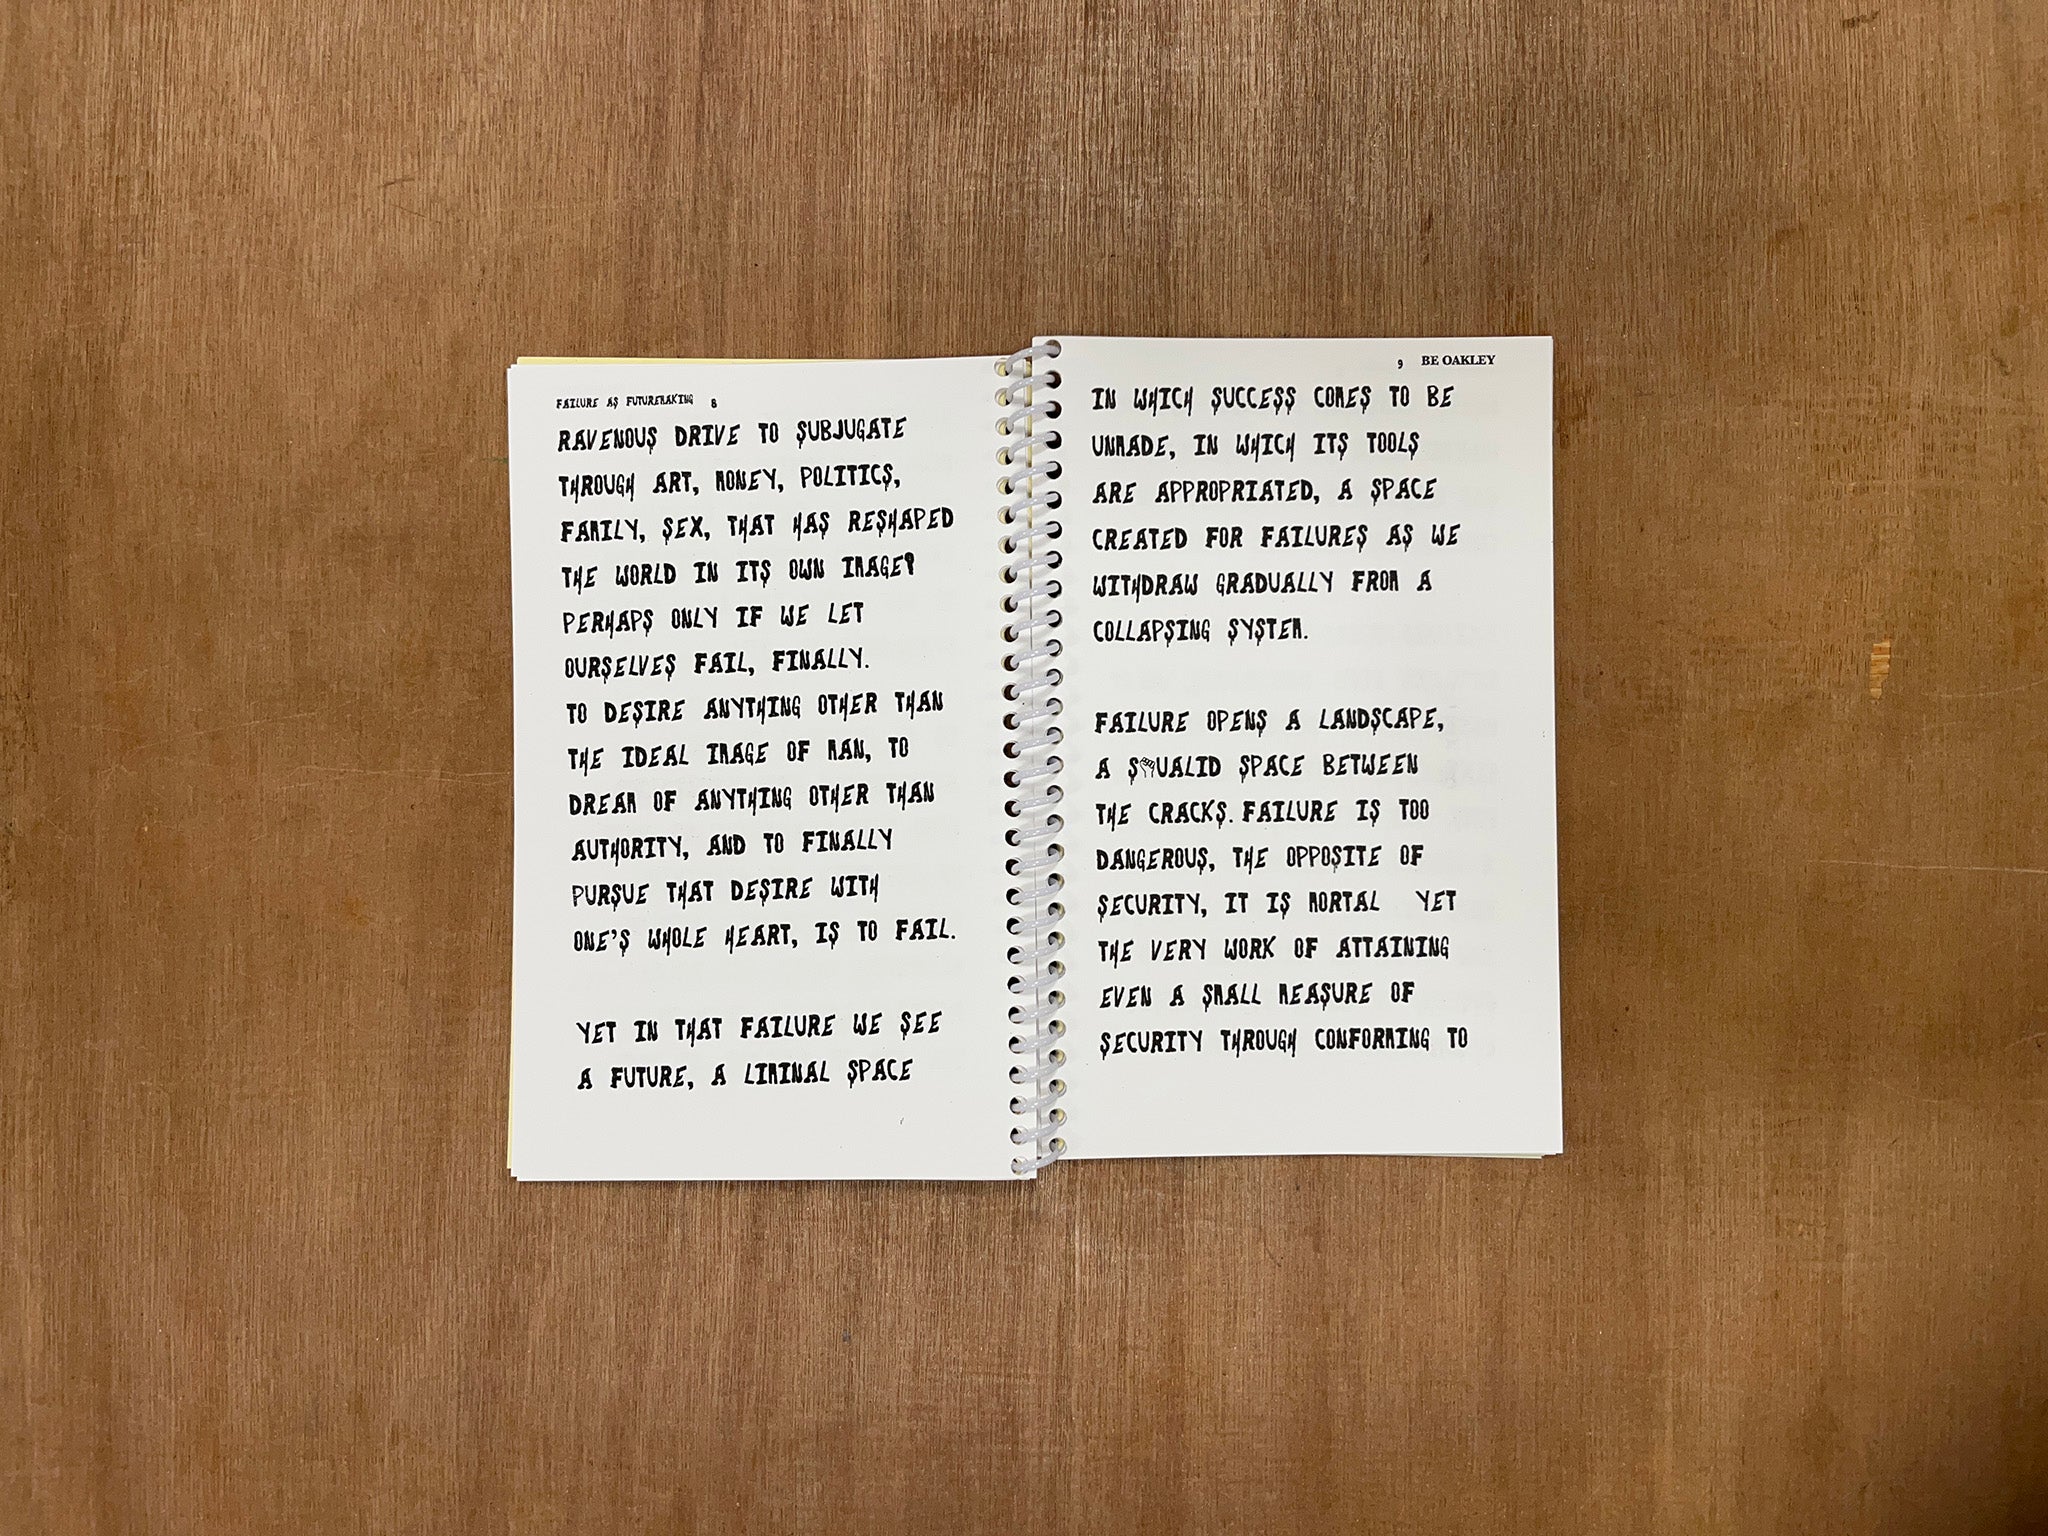 FAILURE AS FUTUREMAKING 8
RAVENOUS DRIVE TO SUBJUGATE
THROUGH ART, MONEY, POLITICS,
FAMILY, SEX, THAT HAS RESHAPED
THE WORLD IN ITS OWN IMAGE?
PERHAPS ONLY IF WE LET
OURSELVES FAIL, FINALLY.
TO DESIRE ANYTHING OTHER THAN
THE IDEAL IMAGE OF MAN, TO
DREAM OF ANYTHING OTHER THAN
AUTHORITY, AND TO FINALLY
PURSUE THAT DESIRE WITH
ONE'S WHOLE HEART, IS TO FAIL.
YET IN THAT FAILURE WE SEE
A FUTURE, A LIMINAL SPACE
9 BE OAKLEY
IN WHICH SUCCESS COMES TO BE
UNMADE, IN WHICH ITS TOOLS
ARE APPROPRIATED, A SPACE
CREATED FOR FAILURES AS WE
WITHDRAW GRADUALLY FROM A
COLLAPSING SYSTEM.
FAILURE OPENS A LANDSCAPE,
A S✊UALID SPACE BETWEEN
THE CRACKS. FAILURE IS TOO
DANGEROUS, THE OPPOSITE OF
SECURITY, IT IS MORTAL YET
THE VERY WORK OF ATTAINING
EVEN A SMALL MEASURE OF
SECURITY THROUGH CONFORMING TO